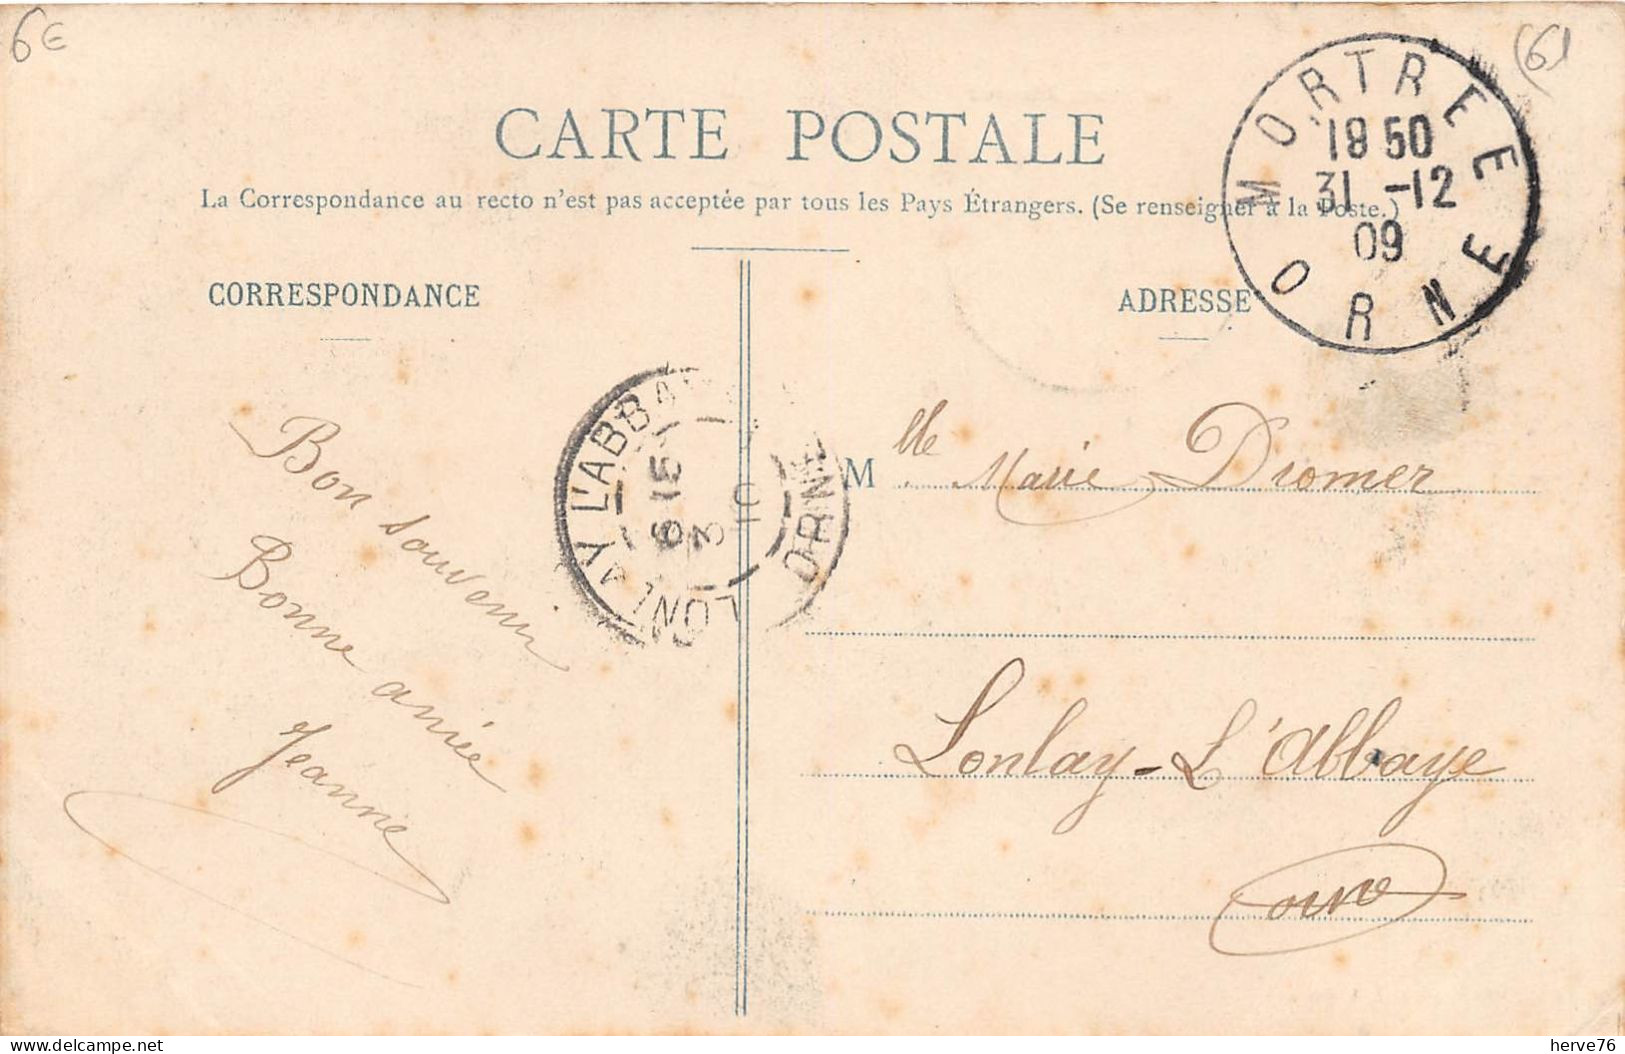 6€
(61
CARTE POSTALE
La Correspondance au recto n'est pas acceptée par tous les Pays Étrangers. (Se renseigner à la Poste.)
MORTREE
18 50
31 -12
09
ORNE
CORRESPONDANCE
ADRESSE
Bon souvenir
Bonne année
Jeanne
LONLAY L'ABBA
6 15
3
10
ORNE
Mlle Marie Dromer
Lonlay-L'Abbaye
Orne
delcampe.net
herve76